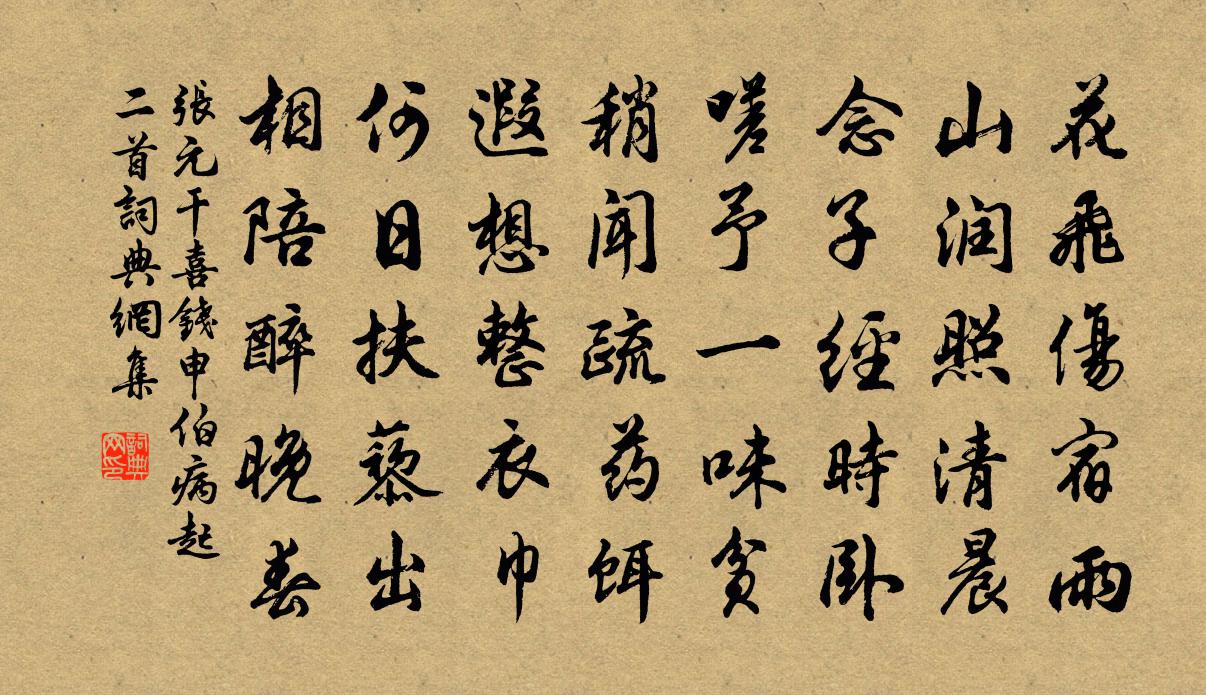 花飛傷宿雨
山润照清晨
念子經時卧
嗟予一味貧
稍聞疏药餌
遐想整衣巾
何日扶藜出
相陪醉晚春
張元干喜錢申伯病起
二首詞典網集
詞典
网印